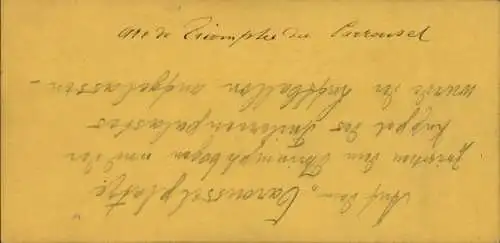 Arc de Triomphe du Carrousel
Auf dem „Carousselplatze
zwischen dem Triumphbogen und der
Kuppel des Tuilerienpalastes
wurde der Luftballon aufgelassen –